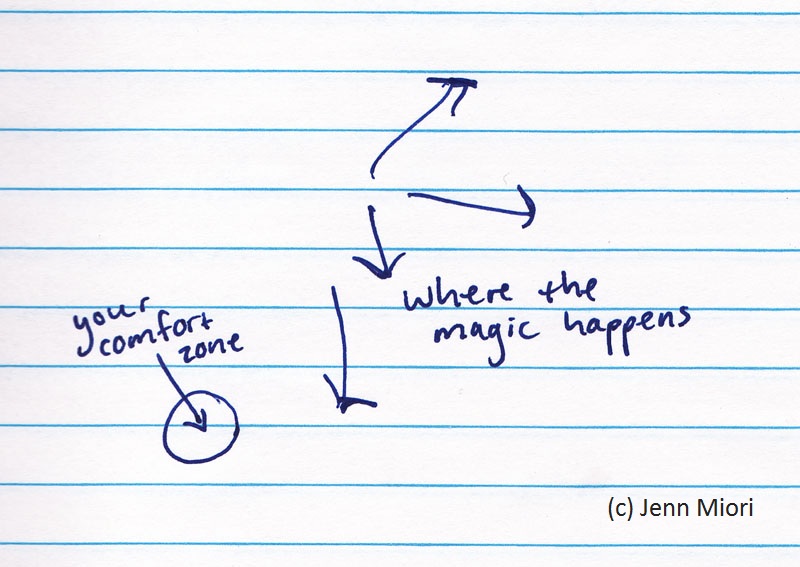 where the
magic happens
your
comfort
zone
(c) Jenn Miori